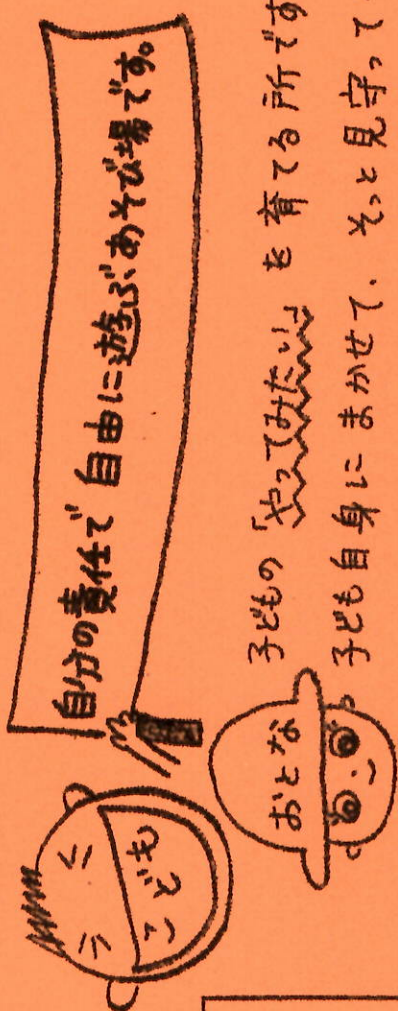 自分の責任で自由に遊ぶあそび場です。
こども
子どもの「やってみたい」を育てる所です
おとな
子ども自身にまかせて、そっと見守って